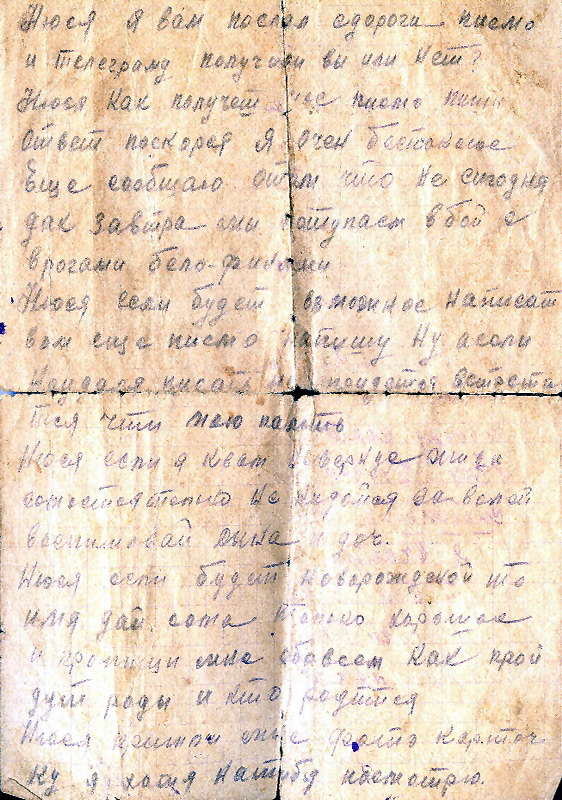 Нюся я вам послал сдороги писмо
и телеграму получили вы или нет?
Нюся Как получет писмо пиши
ответ поскорея Я очен беспокоюс
Еще сообщаю что не сигодня
дак завтра мы вступаем в бой с
врогами бело-финами
Нюся если будет возможнос написат
вам еще писмо напишу Ну а если
писать не
тися чти мою память
Нюся если я квам не вернус живи
самостоятельно не
воспитовай сына и доч.
Нюся если будет новорождской то
имя дай сама только хорошое
и пропиши мне обовсем Как прой
дут роды и кто родится
Нюся пришли мне фото карточ
ку я хотя на тибя посмотрю.